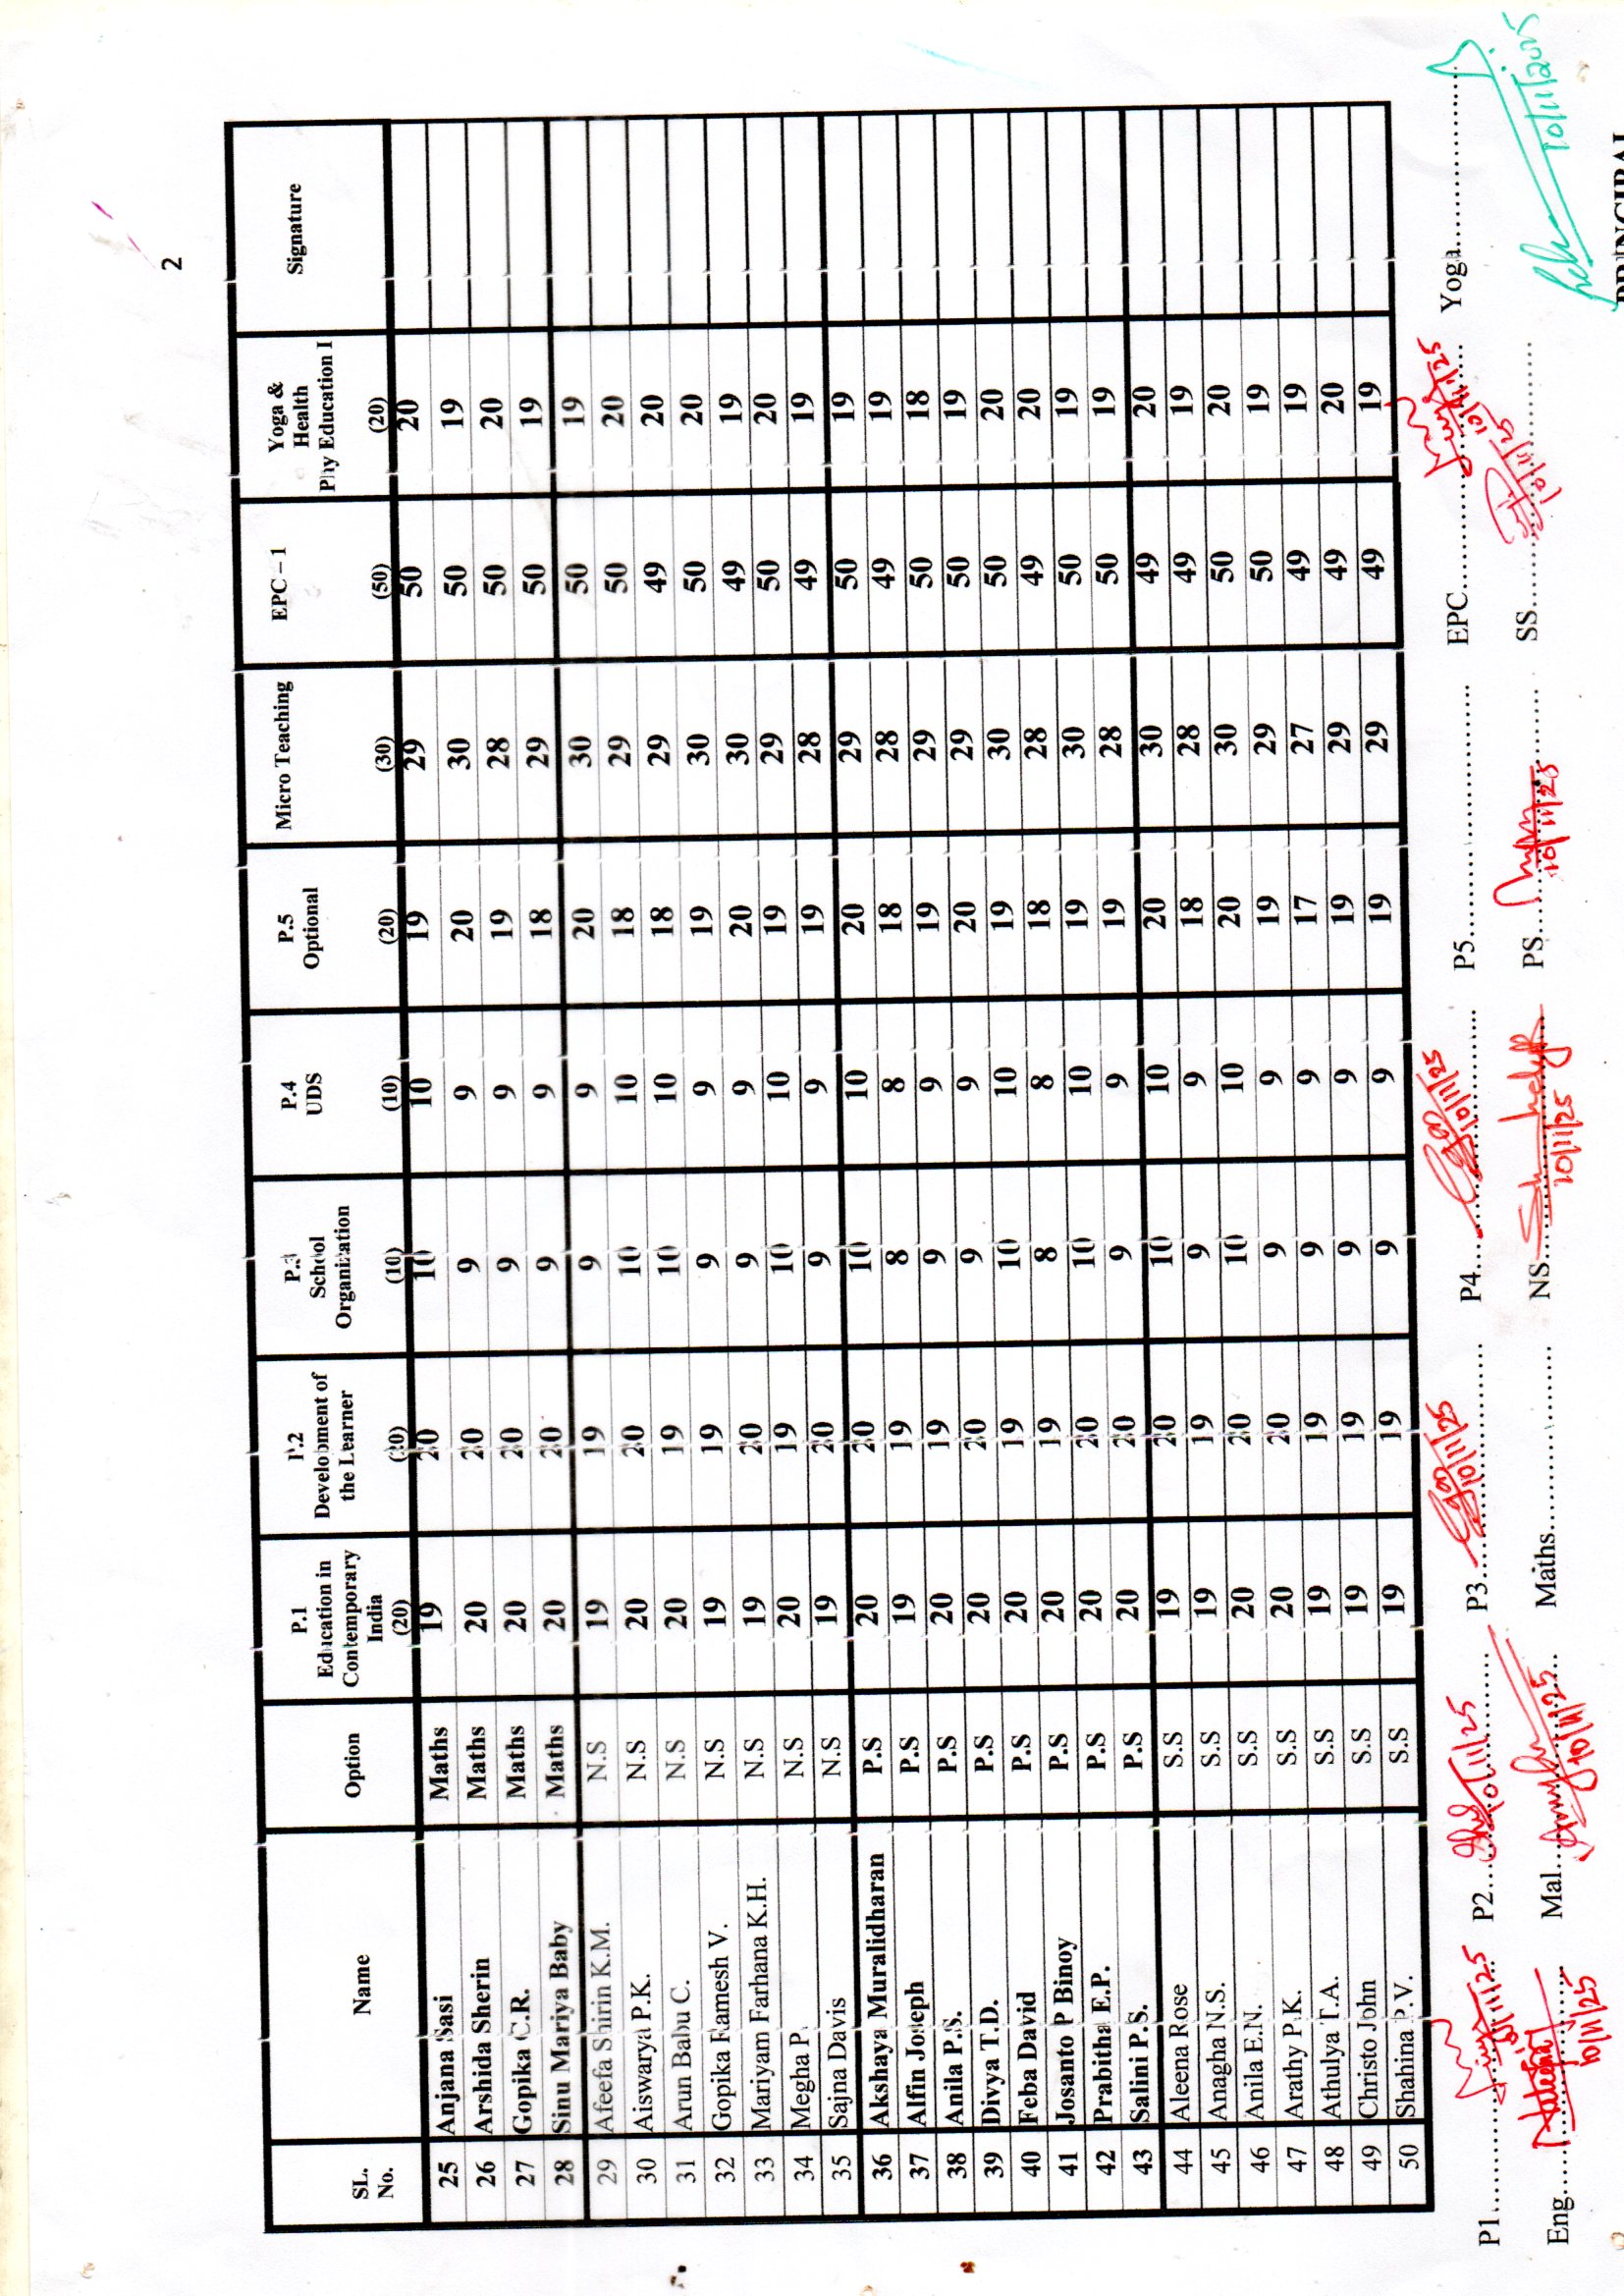 2
SL. No. Name Option P.1 Education in Contemporary India (20) P.2 Development of the Learner (20) P.3 School Organization (10) P.4 UDS (10) P.5 Optional (20) Micro Teaching (30) EPC – 1 (50) Yoga & Health Phy Education I (20) Signature
25 Anjana Sasi Maths 19 20 10 10 19 29 50 20
26 Arshida Sherin Maths 20 20 9 9 20 30 50 19
27 Gopika C.R. Maths 20 20 9 9 19 28 50 20
28 Sinu Mariya Baby Maths 20 20 9 9 18 29 50 19
29 Afeefa Shirin K.M. N.S 19 19 9 9 20 30 50 19
30 Aiswarya P.K. N.S 20 20 10 10 18 29 50 20
31 Arun Babu C. N.S 20 19 10 10 18 29 49 20
32 Gopika Ramesh V. N.S 19 19 9 9 19 30 50 20
33 Mariyam Farhana K.H. N.S 19 20 9 9 20 30 49 19
34 Megha P. N.S 20 19 10 10 19 29 50 20
35 Sajna Davis N.S 19 20 9 9 19 28 49 19
36 Akshaya Muralidharan P.S 20 20 10 10 20 29 50 19
37 Alfin Joseph P.S 19 19 8 8 18 28 49 19
38 Anila P.S. P.S 20 19 9 9 19 29 50 18
38 Divya T.D. P.S 20 20 9 9 20 29 50 19
40 Feba David P.S 20 19 10 10 19 30 50 20
41 Josanto P Binoy P.S 20 19 8 8 18 28 49 20
42 Prabitha E.P. P.S 20 20 10 10 19 30 50 19
43 Salini P.S. P.S 20 20 9 9 19 28 50 19
44 Aleena Rose S.S 19 20 10 10 20 30 49 20
45 Anagha N.S. S.S 19 19 9 9 18 28 49 19
46 Anila E.N. S.S 20 20 10 10 20 30 50 20
47 Arathy P.K. S.S 20 20 9 9 19 29 50 19
48 Athulya T.A. S.S 19 19 9 9 17 27 49 19
49 Christo John S.S 19 19 9 9 19 29 49 20
50 Shahina P.V. S.S 19 19 9 9 19 29 49 19
P1 10/11/25 P2 10/11/25 P3 10/11/25 P4 10/11/25 P5 EPC 10/11/25 Yoga
Eng 10/11/25 Mal 10/11/25 Maths NS 10/11/25 PS 10/11/25 SS 10/11/25
10/11/2025
PRINCIPAL